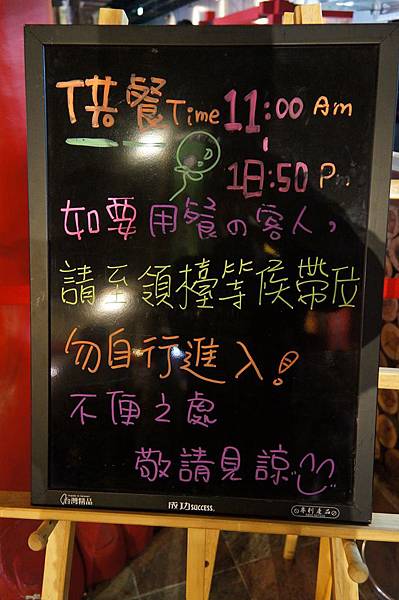 供餐 Time 11:00 Am
18:50 Pm
如要用餐の客人,
請至領檯等候帶位
勿自行進入!
不便之處
敬請見諒
台灣精品
成功 SUCCESS.
專利產品